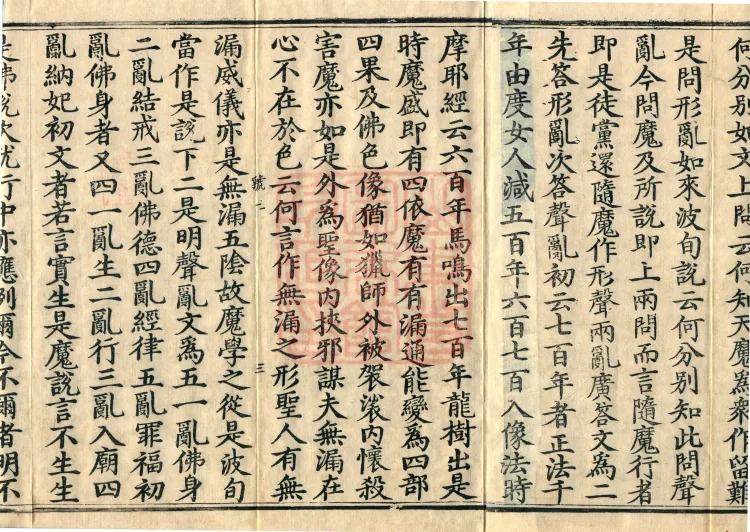 何分別如文上問云何知天魔爲衆作留難
是問形亂如來波旬說云何分別知此問聲
亂今問魔及所說即上兩問而言隨魔行者
即是徒黨還隨魔作形聲兩亂廣答文爲二
先答形亂次答聲亂初云七百年者正法千
年由度女人減五百年六百七百入像法時
摩耶經云六百年馬鳴出七百年龍樹出是
時魔盛即有四依魔有有漏通能變爲四部
四果及佛色像猶如獵師外被袈裟内懷殺
害魔亦如是外爲聖像内挾邪謀夫無漏在
心不在於色云何言作無漏之形聖人有無
號二 三
漏威儀亦是無漏五陰故魔學之從是波旬
當作是說下二是明聲亂文爲五一亂佛身
二亂結戒三亂佛德四亂經律五亂罪福初
亂佛身者又四一亂生二亂行三亂入廟四
亂納妃初文者若言實生是魔說言不生生
是佛說次就行中亦應例爾今不爾者明不